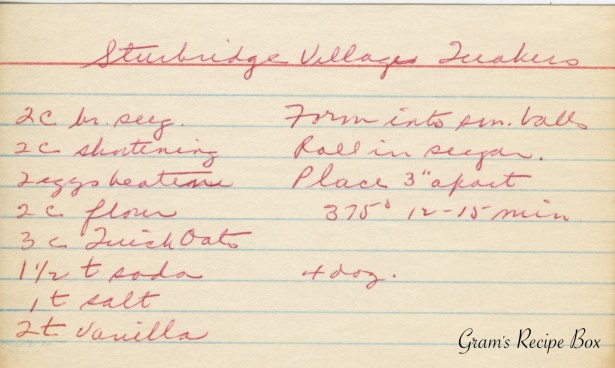 Sturbridge Village Quakers
2 c br. sug.
2 c shortening
2 eggs beaten
2 c flour
3 c Quick Oats
1 1/2 t soda
1 t salt
2 t vanilla
Form into sm. balls
Roll in sugar.
Place 3" apart
375° 12-15 min
4 doz.
Gram's Recipe Box